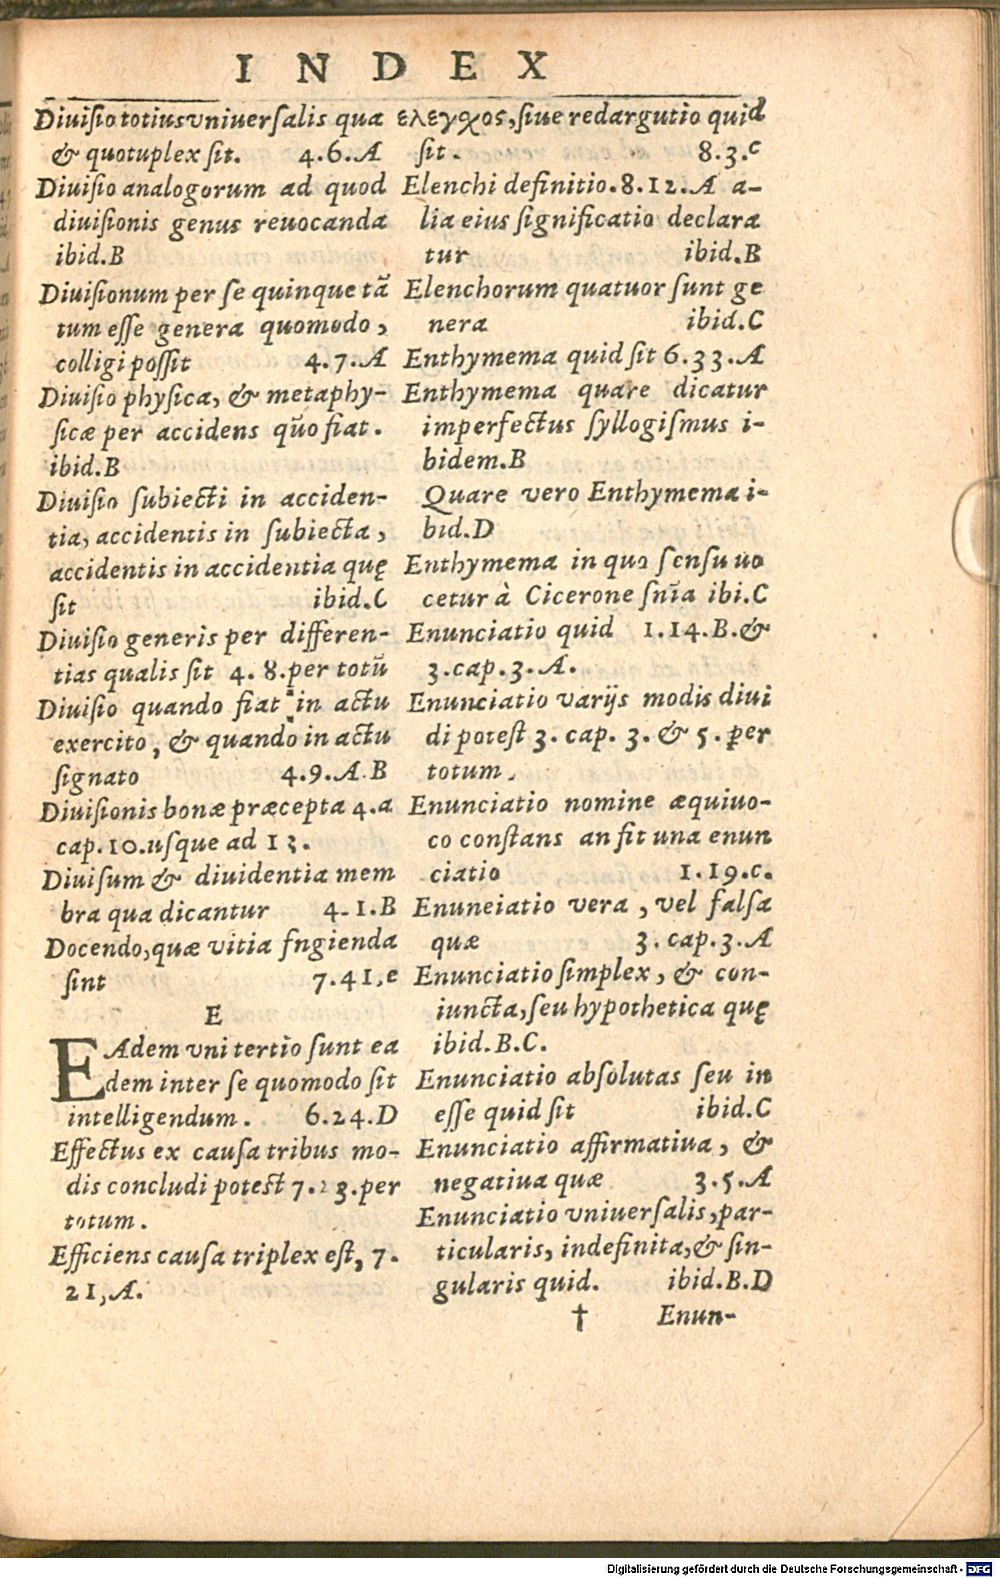 INDEX
Diuisio totius vniuersalis qua
& quotuplex sit. 4.6.A
Diuisio analogorum ad quod
diuisionis genus reuocanda
ibid.B
Diuisionum per se quinque tã
tum esse genera quomodo,
colligi possit 4.7.A
Diuisio physica, & metaphy-
sicæ per accidens quõ fiat.
ibid.B
Diuisio subiecti in acciden-
tia, accidentis in subiecta,
accidentis in accidentia quę
sit ibid.C
Diuisio generis per differen-
tias qualis sit 4. 8.per totũ
Diuisio quando fiat in actu
exercito, & quando in actu
signato 4.9.A.B
Diuisionis bonæ præcepta 4.a
cap.10.usque ad 13.
Diuisum & diuidentia mem
bra qua dicantur 4.1.B
Docendo, quæ vitia fngienda
sint 7.41,e
E
EAdem vni tertio sunt ea
dem inter se quomodo sit
intelligendum. 6.24.D
Effectus ex causa tribus mo-
dis concludi potest 7.23.per
totum.
Efficiens causa triplex est, 7.
21,A.
ελεγχος, siue redargutio quid
sit. 8.3.c
Elenchi definitio.8.12.A a-
lia eius significatio declara
tur ibid.B
Elenchorum quatuor sunt ge
nera ibid.C
Enthymema quid sit 6.33.A
Enthymema quare dicatur
imperfectus syllogismus i-
bidem.B
Quare vero Enthymema i-
bid.D
Enthymema in quo sensu uo
cetur à Cicerone snĩa ibi.C
Enunciatio quid 1.14.B.&
3.cap.3.A.
Enunciatio varijs modis diui
di potest 3. cap. 3. & 5. per
totum.
Enunciatio nomine æquiuo-
co constans an sit una enun
ciatio 1.19.c.
Enuneiatio vera, vel falsa
quæ 3. cap.3.A
Enunciatio simplex, & con-
iuncta, seu hypothetica quę
ibid.B.C.
Enunciatio absolutas seu in
esse quid sit ibid.C
Enunciatio affirmatiua, &
negatiua quæ 3.5.A
Enunciatio vniuersalis, par-
ticularis, indefinita, & sin-
gularis quid. ibid.B.D
† Enun-
Digitalisierung gefördert durch die Deutsche Forschungsgemeinschaft - DFG